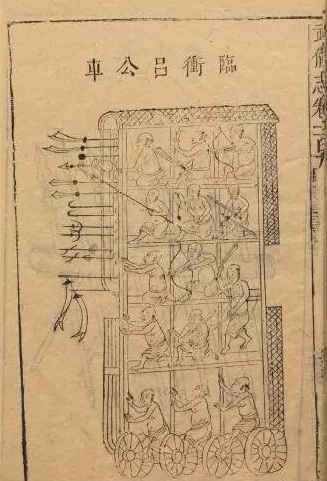 臨衝呂公車
武備志卷一百九